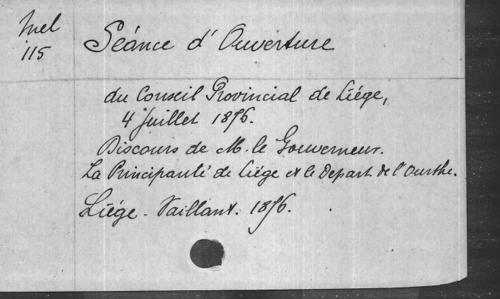 Mel
115
Séance d'Ouverture
du Conseil Provincial de Liége,
4 Juillet 1876.
Discours de M. le Gouverneur.
La Principauté de Liége et le Depart. de l'Ourthe.
Liége - Vaillant. 1876.